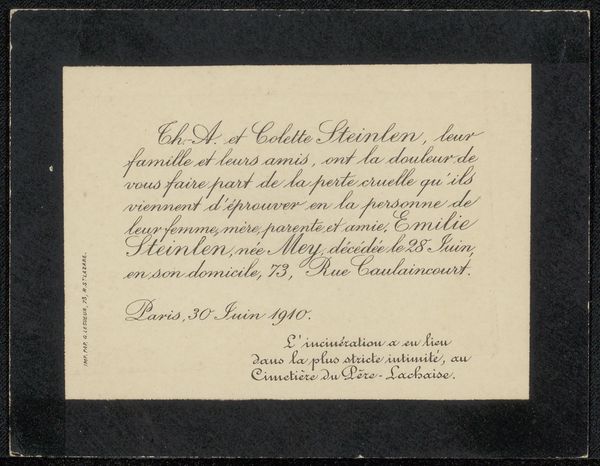 Th.-A. et Colette Steinlen, leur
famille et leurs amis, ont la douleur de
vous faire part de la perte cruelle qu'ils
viennent d'éprouver en la personne de
leur femme, mère, parente et amie, Emilie
Steinlen, née Mey, décédée le 28 Juin,
en son domicile, 73, Rue Caulaincourt.
Paris, 30 Juin 1910.
L'incinération a eu lieu
dans la plus stricte intimité, au
Cimetière du Père-Lachaise.
IMP. PAP. G. LESIEUR, 75, R. ST LAZARE.